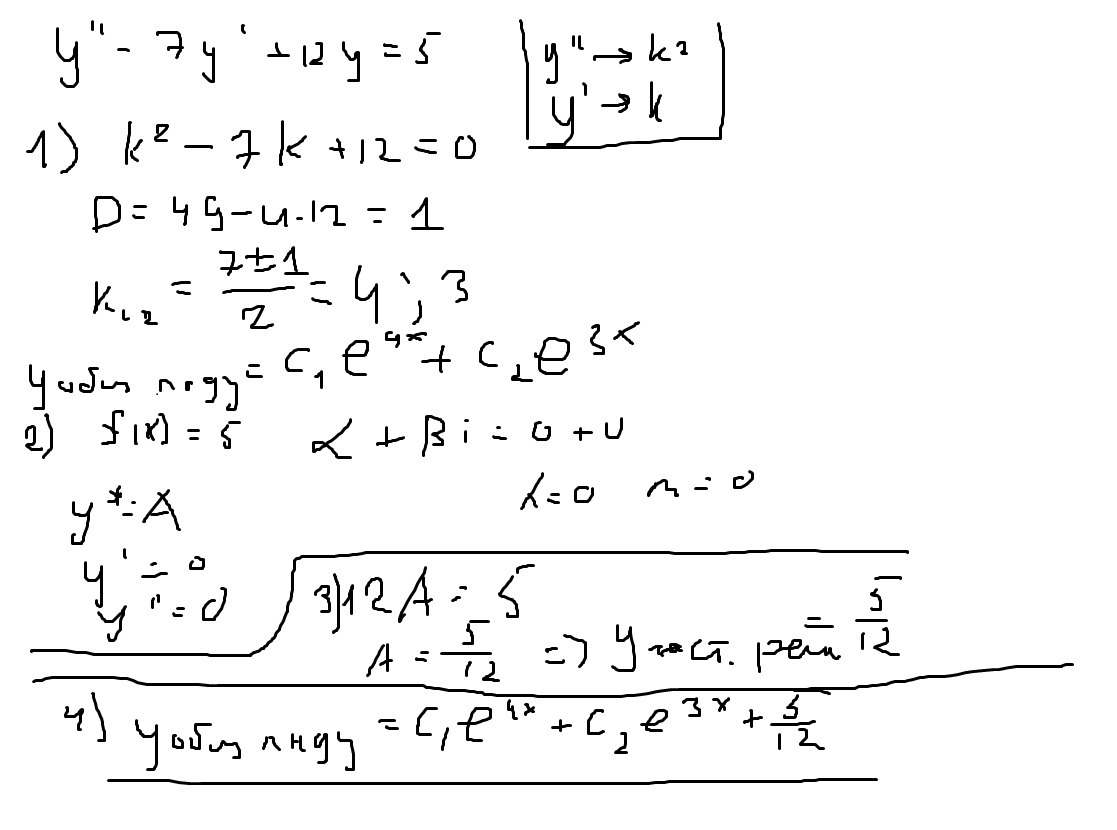 y'' - 7y' + 12y = 5
y'' → k²
y' → k
1) k² - 7k + 12 = 0
D = 49 - 4·12 = 1
k₁,₂ = (7±1)/2 = 4; 3
y общ лоду = C₁e^(4x) + C₂e^(3x)
2) f(x) = 5 α + βi = 0 + 0
α = 0 n = 0
y* = A
y' = 0
y'' = 0
3) 12A = 5
A = 5/12 => y част. реш = 5/12
4) y общ лнду = C₁e^(4x) + C₂e^(3x) + 5/12